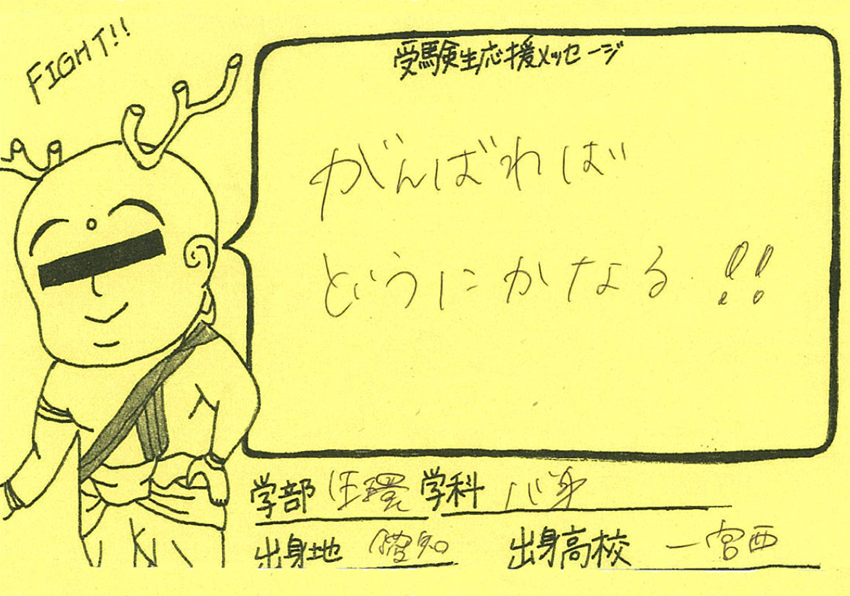 FIGHT!!
受験生応援メッセージ
がんばれば
どうにかなる!!
学部 住環 学科 心身
出身地 愛知 出身高校 一宮西